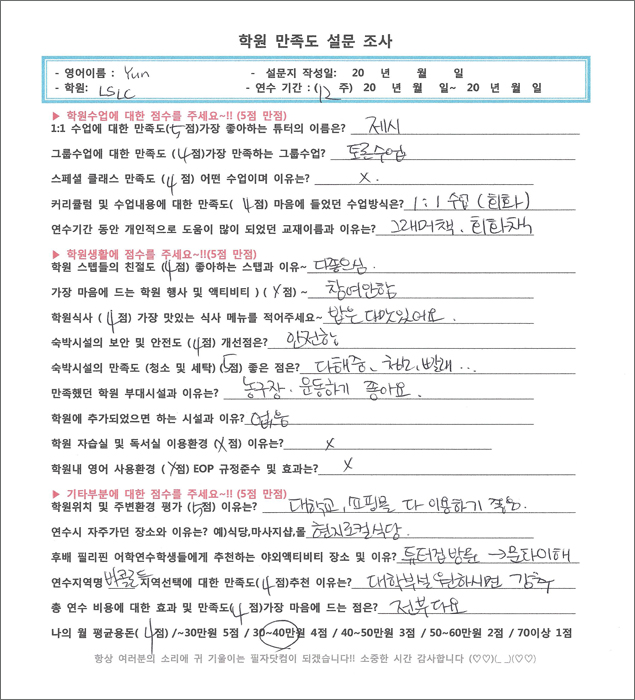 학원 만족도 설문 조사
- 영어이름 : Yun - 설문지 작성일: 20 년 월 일
- 학원: LSLC - 연수 기간 : (12 주) 20 년 월 일~ 20 년 월 일
▶ 학원수업에 대한 점수를 주세요~!! (5점 만점)
1:1 수업에 대한 만족도(5점)가장 좋아하는 튜터의 이름은? 제시
그룹수업에 대한 만족도(4점)가장 만족하는 그룹수업? 토론수업
스페셜 클래스 만족도 (4점) 어떤 수업이며 이유는? X.
커리큘럼 및 수업내용에 대한 만족도( 4점) 마음에 들었던 수업방식은? 1:1 수업 (회화)
연수기간 동안 개인적으로 도움이 많이 되었던 교재이름과 이유는? 그래머책, 회화책
▶ 학원생활에 점수를 주세요~!!(5점 만점)
학원 스텝들의 친절도 (4점) 좋아하는 스탭과 이유~ 다좋으심.
가장 마음에 드는 학원 행사 및 액티비티 ) ( X점) ~ 참여안함
학원식사 ( 4점) 가장 맛있는 식사 메뉴를 적어주세요~ 밥은 다맛있어요.
숙박시설의 보안 및 안전도 (4점) 개선점은? 안전함
숙박시설의 만족도 (청소 및 세탁) (5점) 좋은 점은? 다해줌, 청소, 빨래...
만족했던 학원 부대시설과 이유는? 농구장. 운동하기 좋아요.
학원에 추가되었으면 하는 시설과 이유? 없음
학원 자습실 및 독서실 이용환경 (X점) 이유는? X
학원내 영어 사용환경 ( X점) EOP 규정준수 및 효과는? X
▶ 기타부분에 대한 점수를 주세요~!! (5점 만점)
학원위치 및 주변환경 평가 (5점) 이유는? 대학교, 쇼핑몰 다 이용하기 좋음.
연수시 자주가던 장소와 이유는? 예)식당,마사지샵,몰 현지로컬식당.
후배 필리핀 어학연수학생들에게 추천하는 야외액티비티 장소 및 이유? 튜터집방문 → 문화이해
연수지역명 바콜로드 지역선택에 대한 만족도(4점)추천 이유는? 대학부설 원하시면 강추
총 연수 비용에 대한 효과 및 만족도(4점)가장 마음에 드는 점은? 전부다요
나의 월 평균용돈( 4점) /~30만원 5점 / 30~40만원 4점 / 40~50만원 3점 / 50~60만원 2점 / 70이상 1점
항상 여러분의 소리에 귀 기울이는 필자닷컴이 되겠습니다!! 소중한 시간 감사합니다 (♡♡)(_ _)(♡♡)